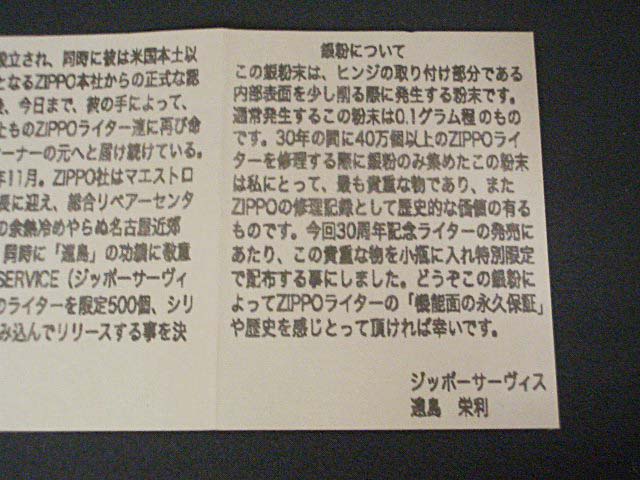 設立され、同時に彼は米国本土以
となるZIPPO本社からの正式な認
後、今日まで、彼の手によって、
ともの ZIPPOライター達に再び命
ーナーの元へと届け続けている。
年11月。ZIPPO社はマエストロ
長に迎え、総合リペアーセンタ
の余熱冷めやらぬ名古屋近郊
同時に「遠島」の功績に敬意
SERVICE（ジッポーサーヴィ
のライターを限定500個、シリ
み込んでリリースする事を決
銀粉について
この銀粉末は、ヒンジの取り付け部分である
内部表面を少し削る際に発生する粉末です。
通常発生するこの粉末は0.1グラム程のもの
です。30年の間に40万個以上のZIPPOライ
ターを修理する際に銀粉のみ集めたこの粉末
は私にとって、最も貴重な物であり、また
ZIPPOの修理記録として歴史的な価値の有る
ものです。今回30周年記念ライターの発売に
あたり、この貴重な物を小瓶に入れ特別限定
で配布する事にしました。どうぞこの銀粉に
よってZIPPOライターの「機能面の永久保証」
や歴史を感じとって頂ければ幸いです。
ジッポーサーヴィス
遠島 栄利